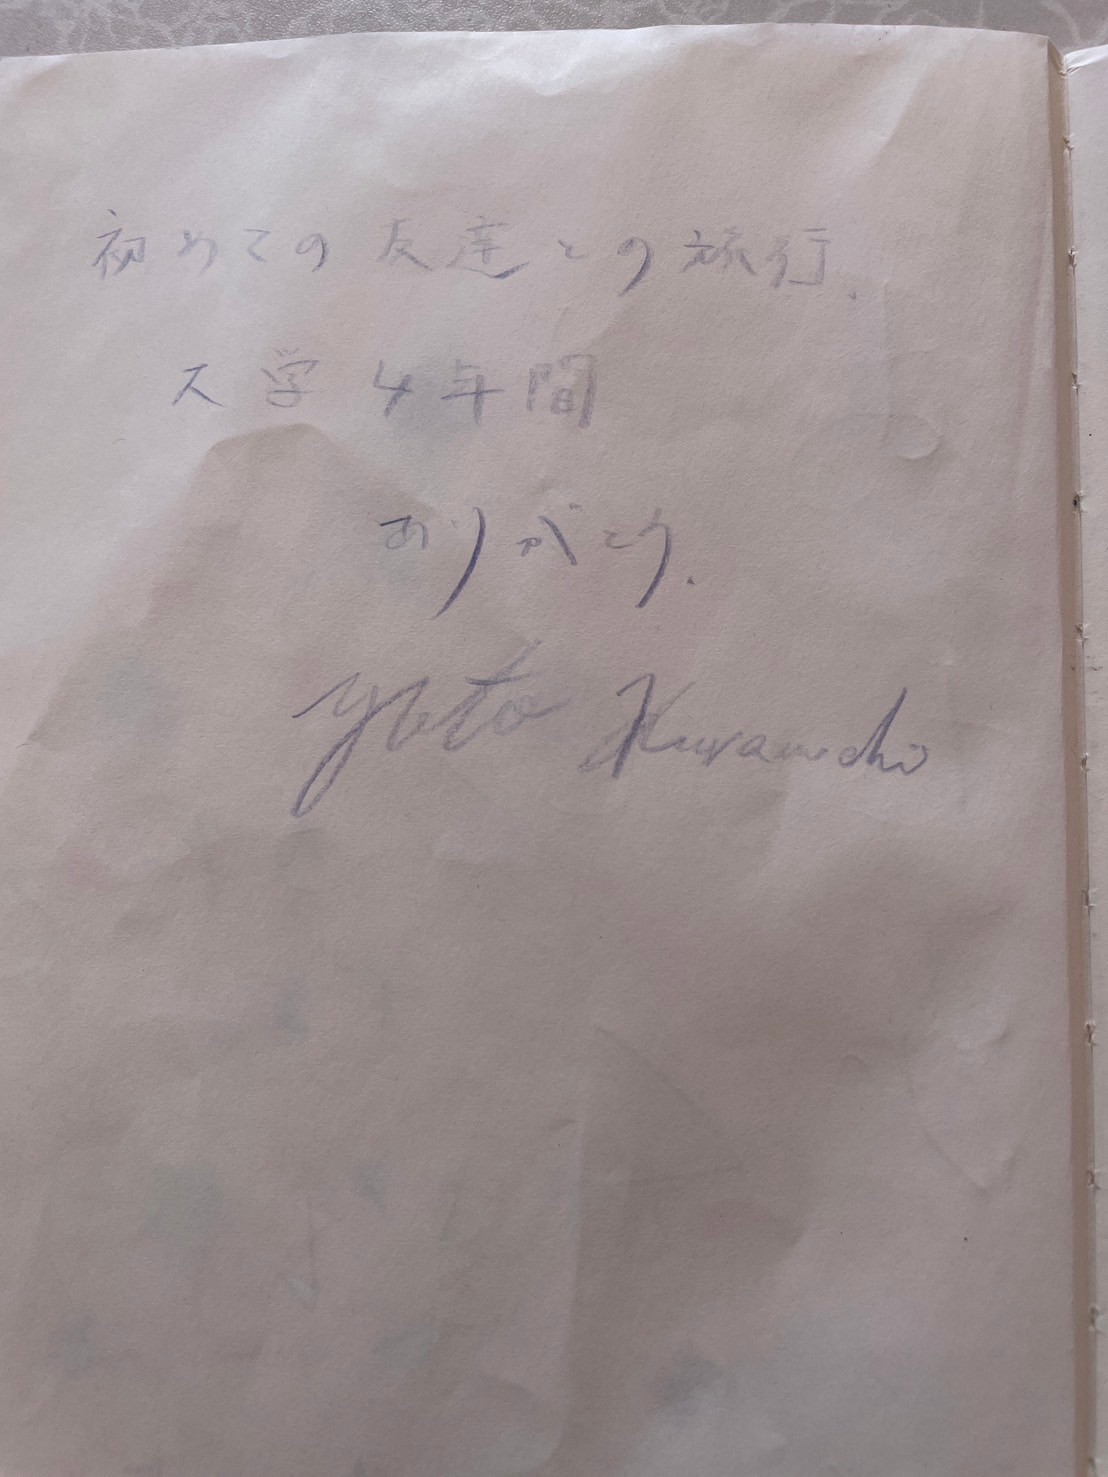 初めての友達との旅行.
大学4年間
ありがとう.
Yuto Kuramochi